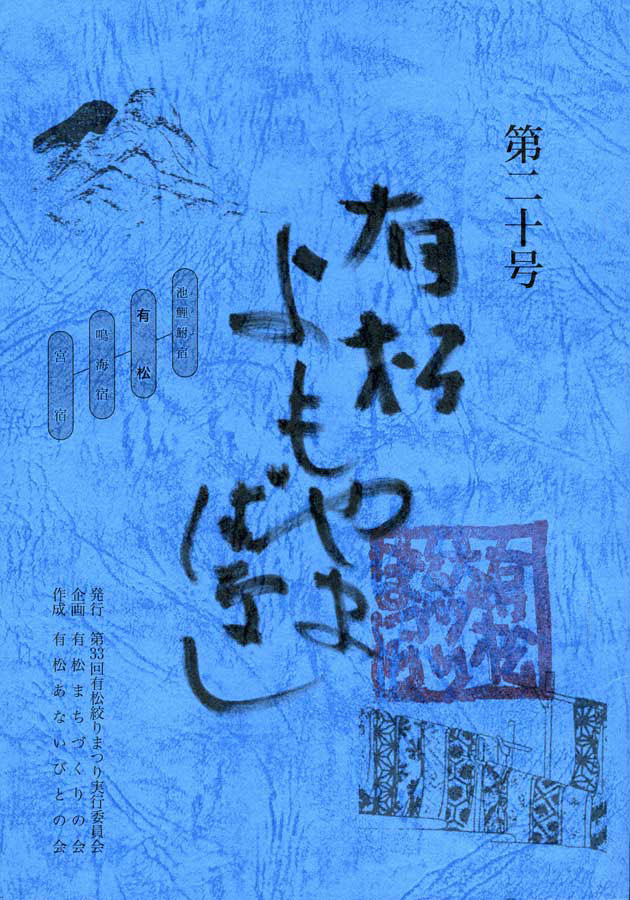 第二十号
有松
よもやま
ばなし
池鯉鮒宿
有松
鳴海宿
宮宿
発行 第33回有松絞りまつり実行委員会
企画 有松まちづくりの会
作成 有松あないびとの会